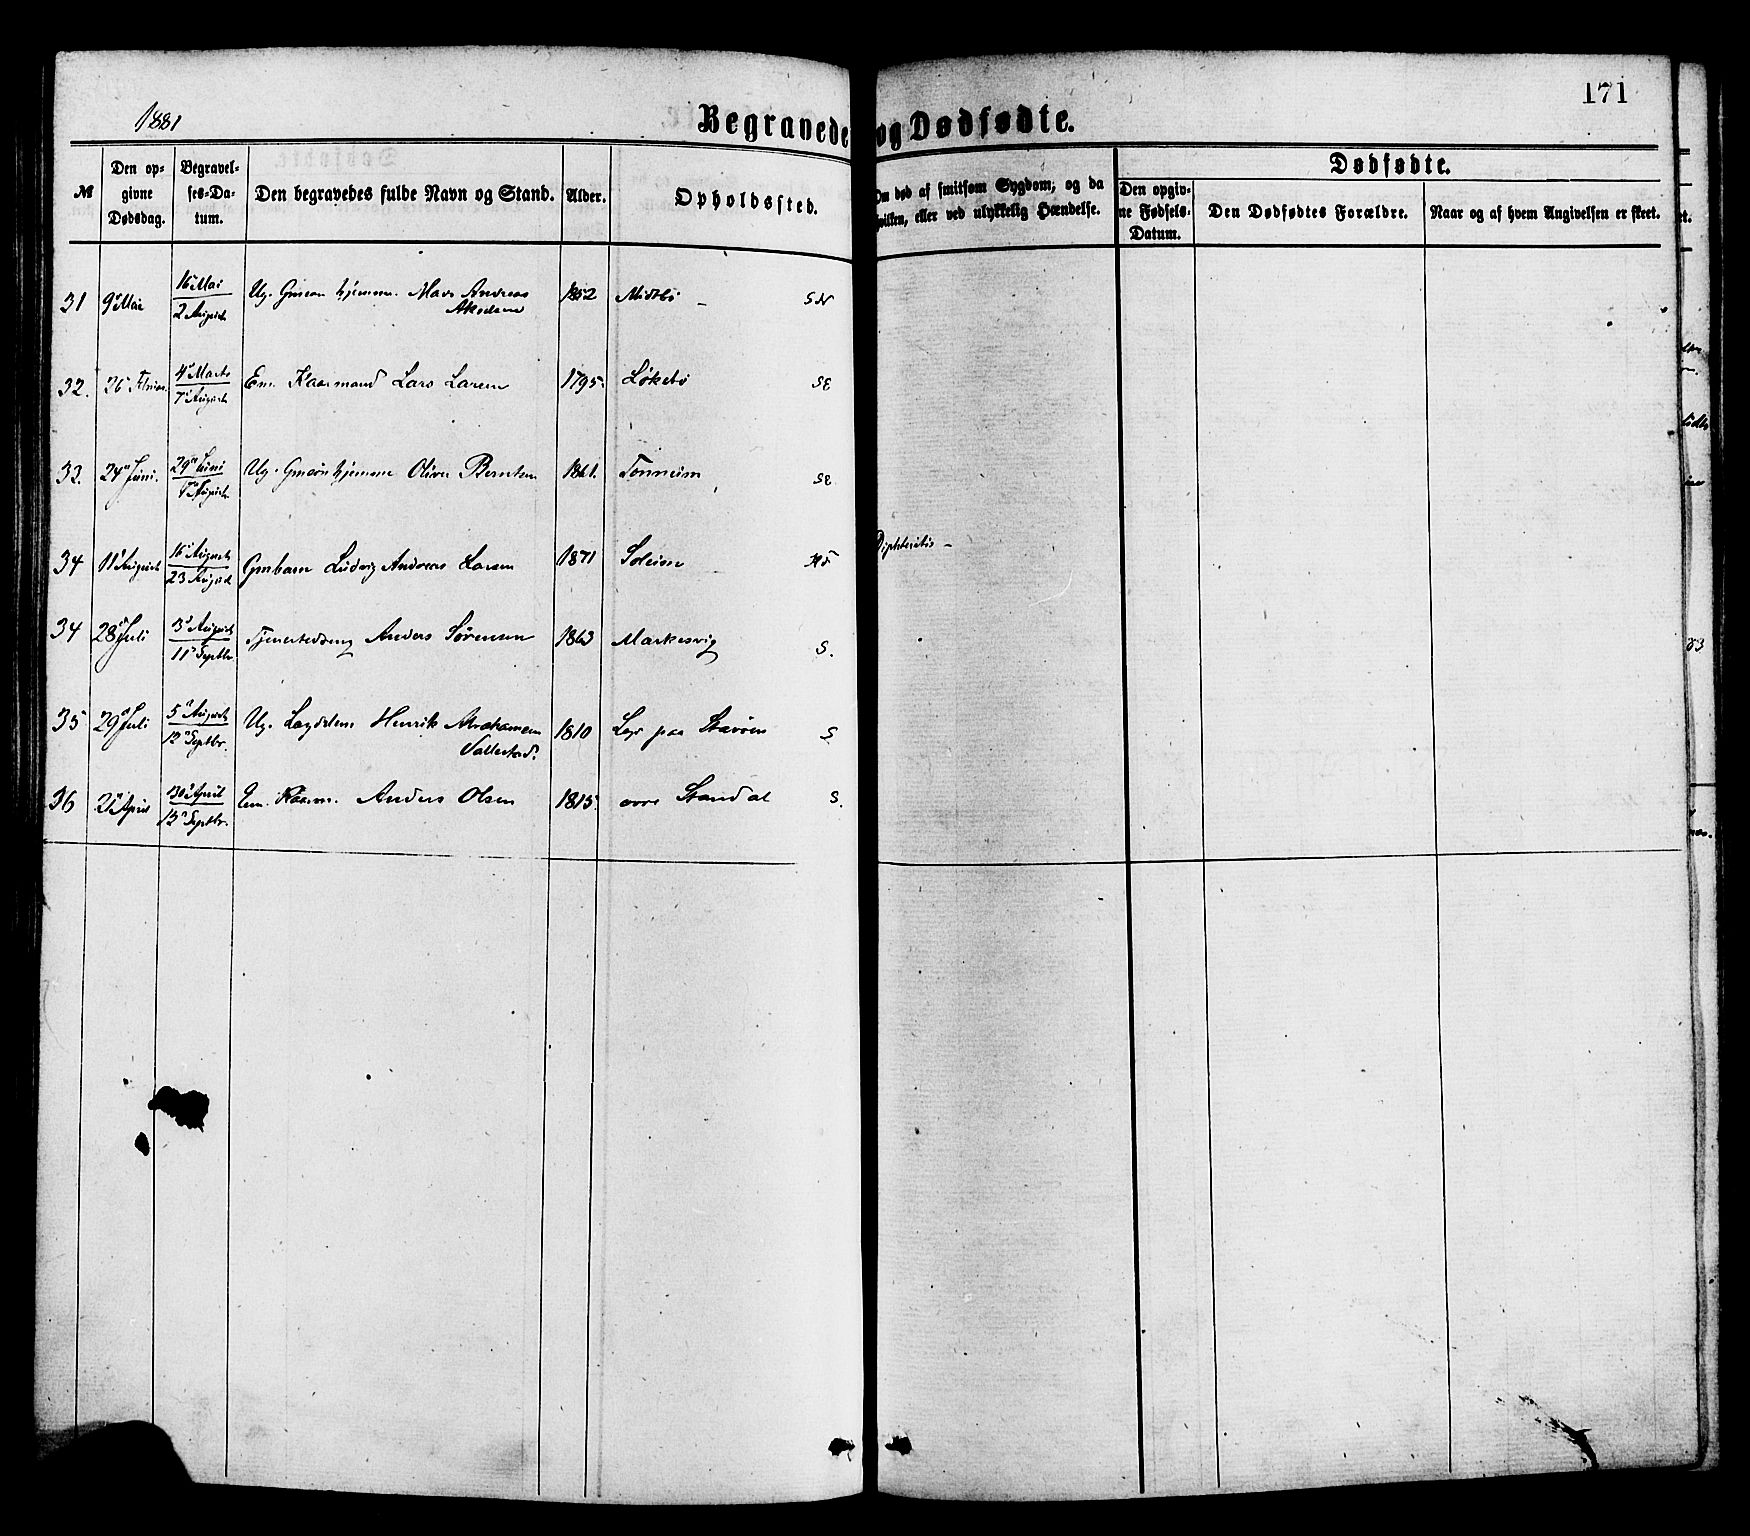 1881
171
Begravede og Dødfødte.
M
Den op-
givne
Dødsdag.
Begravel-
ses-Da-
tum.
Den begravedes fulde Navn og Stand.
Alder.
Opholdssted.
Om død af smitsom Sygdom, og da
hvilken, eller ved ulykkelig Hændelse.
Dødfødte.
Den opgiv-
ne Fødsels-
Datum.
Den Dødfødtes Forældre.
Naar og af hvem Angivelsen er skeet.
31 9 Mai 16 Mai Ug. hjemme Mads Andreas 1852 Midtbø SN
2 August
32. 26 4 Marts Em. Kaarmand Lars Larsen 1795. Løkebø SE
7 August
33. 24 Juni. 29 Juni Ug. hjemme Oliver Berntsen 1861. Tonheim SE
August
34 11 August 16 August Gmbarn Ludvig Andreas Larsen 1871 Solheim Diphteritis –
23 August
34 28 Juli 3 August Anders Sørensen 1863 Markesvig S.
11 Septbr
35 29 Juli 5 August Ug. Henrik Abrahamsen 1810 paa Stavøen S
12 Septbr. Vallestad.
36 21 April 30 April Em. Kaarm. Anders Olsen 1815. øvre Standal S.
13 Septbr.